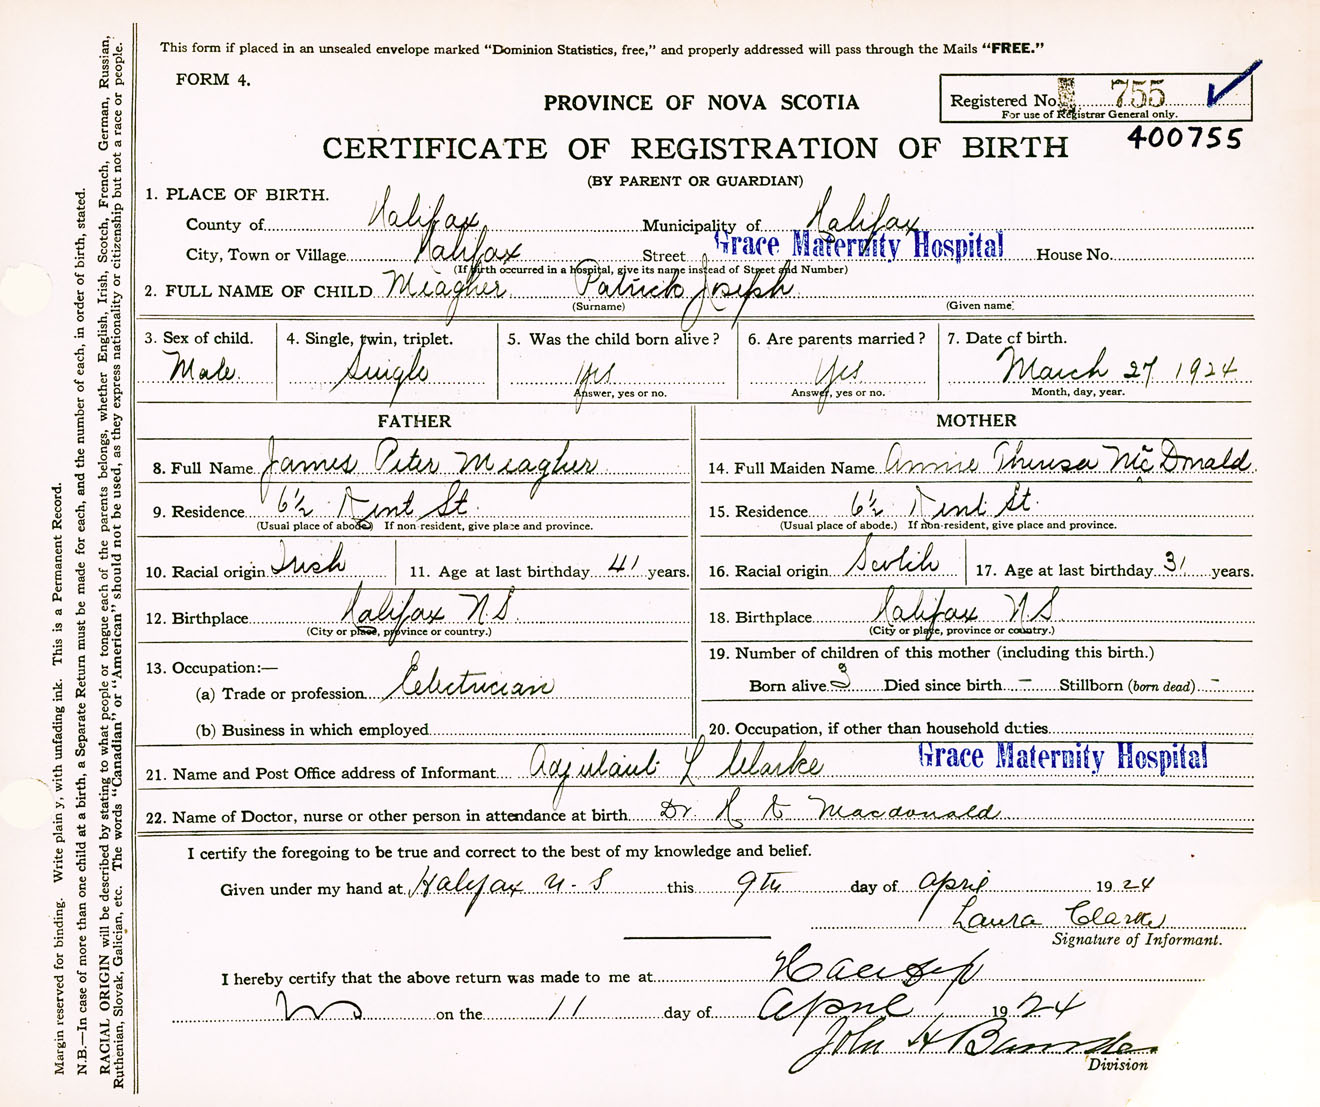 This form if placed in an unsealed envelope marked “Dominion Statistics, free,” and properly addressed will pass through the Mails “FREE.”
FORM 4.
Registered No. 755
For use of Registrar General only.
400755
PROVINCE OF NOVA SCOTIA
CERTIFICATE OF REGISTRATION OF BIRTH
(BY PARENT OR GUARDIAN)
1. PLACE OF BIRTH.
County of Halifax Municipality of Halifax
City, Town or Village Halifax Street Grace Maternity Hospital House No.
(If birth occurred in a hospital, give its name instead of Street and Number)
2. FULL NAME OF CHILD Meagher Patrick Joseph
(Surname) (Given name)
3. Sex of child. 4. Single, twin, triplet. 5. Was the child born alive? 6. Are parents married? 7. Date of birth.
Male Single Yes Yes March 27 1924
Answer, yes or no. Answer, yes or no. Month, day, year.
FATHER MOTHER
8. Full Name James Peter Meagher 14. Full Maiden Name Annie Theresa McDonald
9. Residence 6½ Kent St. 15. Residence 6½ Kent St.
(Usual place of abode) If non-resident, give place and province. (Usual place of abode.) If non-resident, give place and province.
10. Racial origin Irish 11. Age at last birthday 41 years. 16. Racial origin Scotch 17. Age at last birthday 31 years.
12. Birthplace Halifax N.S. 18. Birthplace Halifax N.S
(City or place, province or country.) (City or place, province or country.)
13. Occupation:— 19. Number of children of this mother (including this birth.)
(a) Trade or profession Electrician Born alive 3 Died since birth – Stillborn (born dead) –
(b) Business in which employed 20. Occupation, if other than household duties
21. Name and Post Office address of Informant Adjutant L Clarke Grace Maternity Hospital
22. Name of Doctor, nurse or other person in attendance at birth Dr. Macdonald
I certify the foregoing to be true and correct to the best of my knowledge and belief.
Given under my hand at Halifax N.S this 9th day of April 1924
Laura Clarke
Signature of Informant.
I hereby certify that the above return was made to me at
on the 11 day of April 1924
John H
Division
Margin reserved for binding. Write plainly, with unfading ink. This is a Permanent Record.
N.B.—In case of more than one child at a birth, a Separate Return must be made for each, and the number of each, in order of birth, stated.
RACIAL ORIGIN will be described by stating to what people or tongue each of the parents belongs, whether English, Irish, Scotch, French, German, Russian,
Ruthenian, Slovak, Galician, etc. The words “Canadian” or “American” should not be used, as they express nationality or citizenship but not a race or people.